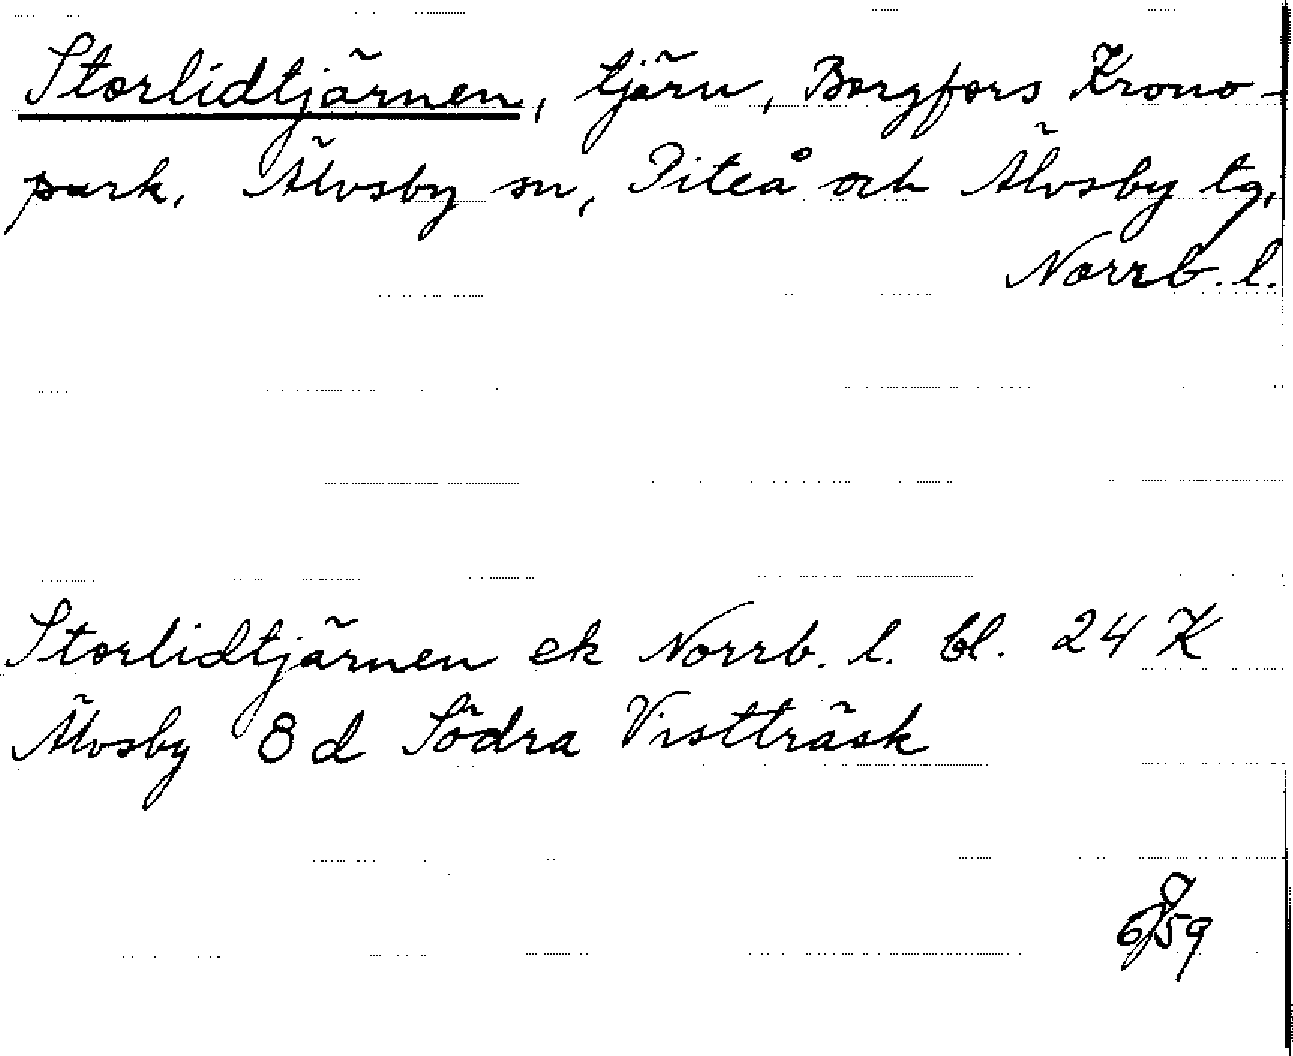 Storlidtjärnen, tjärn, Borgfors Krono-
park, Älvsby sn, Piteå och Älvsby tg,
Norrb. l.
Storlidtjärnen ek Norrb. l. bl. 24 K
Älvsby 8 d Södra Vistträsk